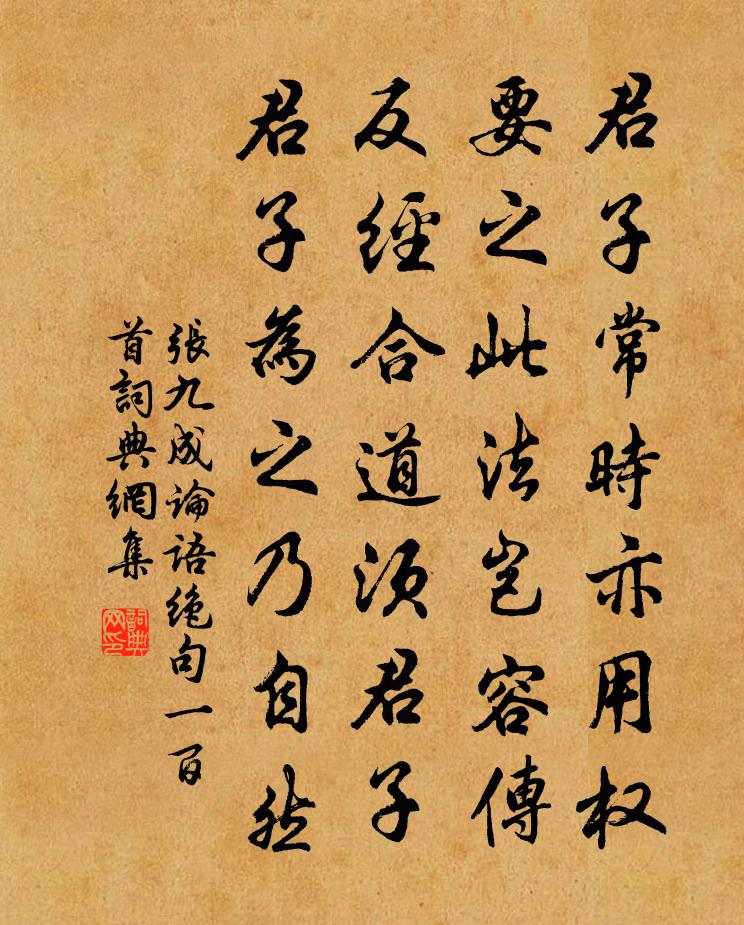 君子常時亦用权
要之此法岂容傳
反經合道须君子
君子為之乃自然
張九成论語绝句一百
首詞典網集
詞典
网印